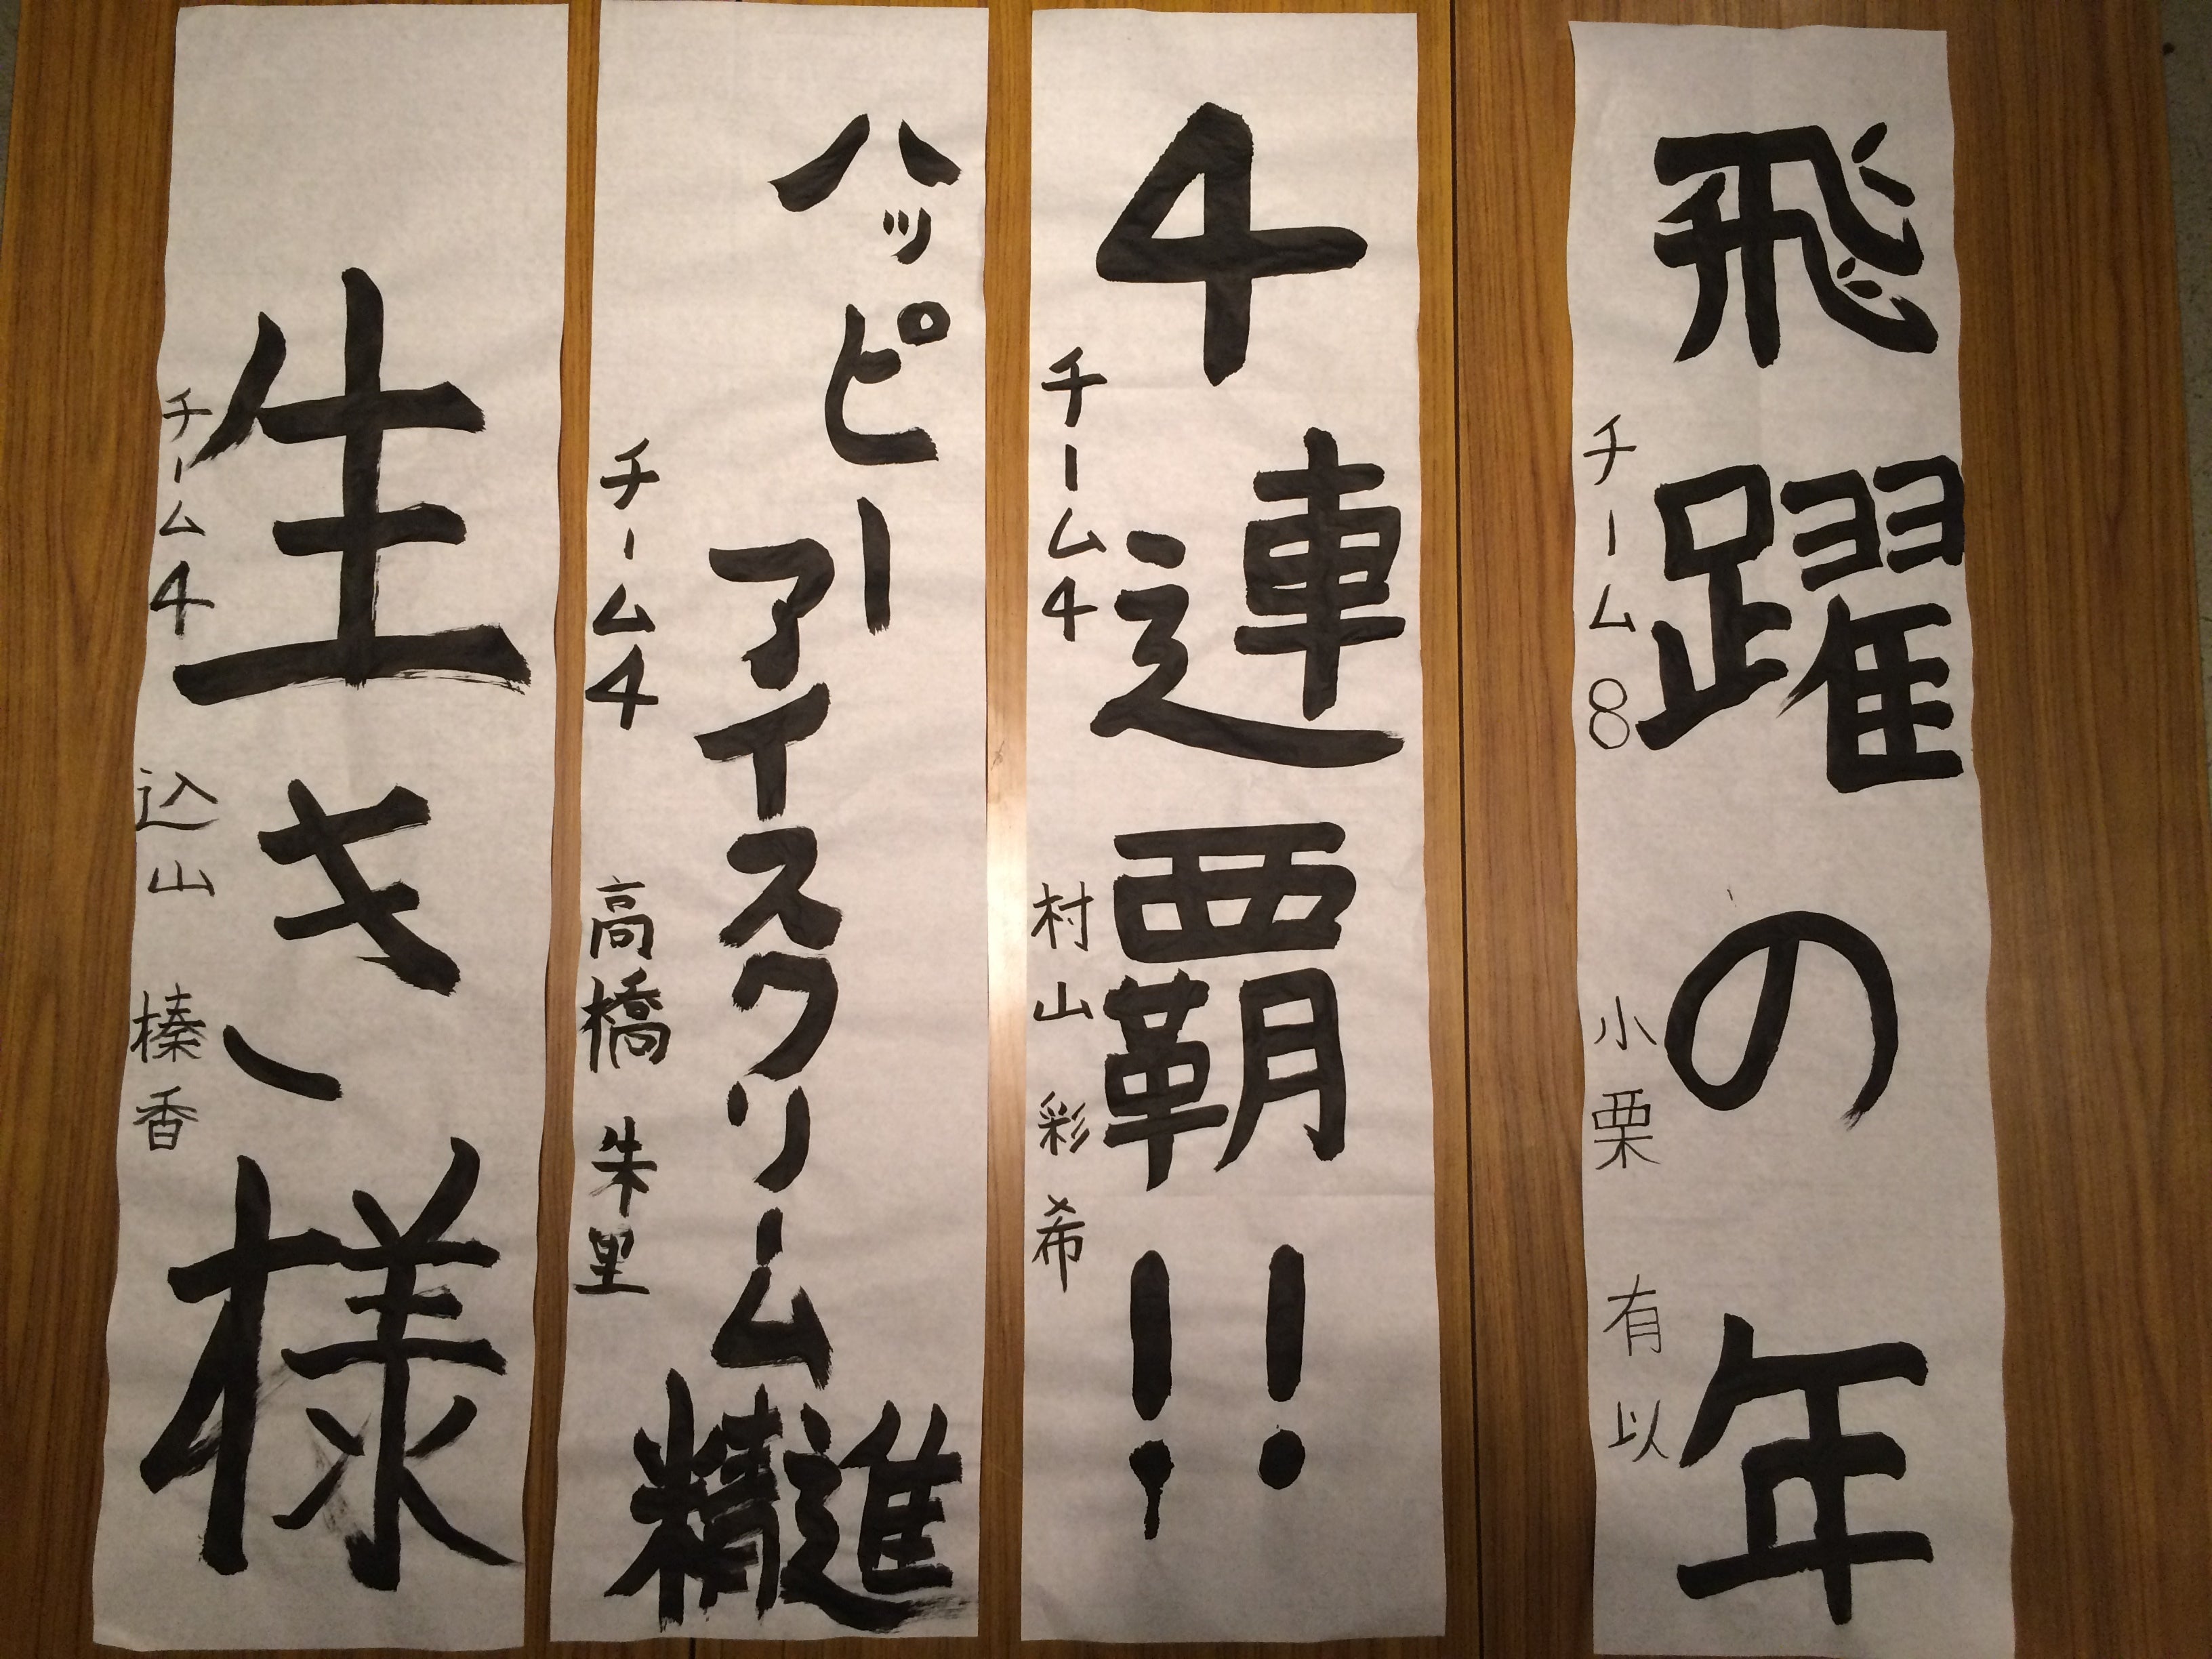 飛躍の年
チーム8 小栗 有以
4連覇!!
チーム4 村山 彩希
ハッピー
アイスクリーム
精進
チーム4 高橋 朱里
生き様
チーム4 込山 榛香